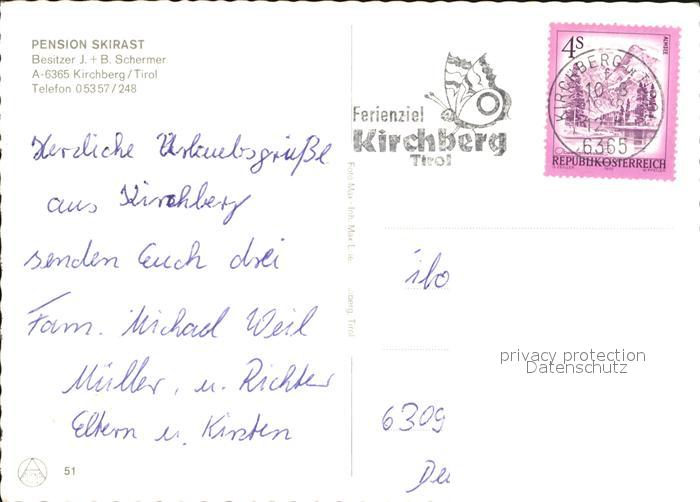 PENSION SKIRAST
Besitzer J. + B. Schermer
A-6365 Kirchberg/Tirol
Telefon 05357/248
Herzliche Urlaubsgrüße
aus Kirchberg
senden Euch drei
Fam. Michael Weil
Müller, u. Richter
Eltern u. Kirsten
51
Foto Max
Ferienziel
Kirchberg
Tirol
4S
ALMSEE
KIRCHBERG
6365
REPUBLIK ÖSTERREICH
6309
privacy protection
Datenschutz